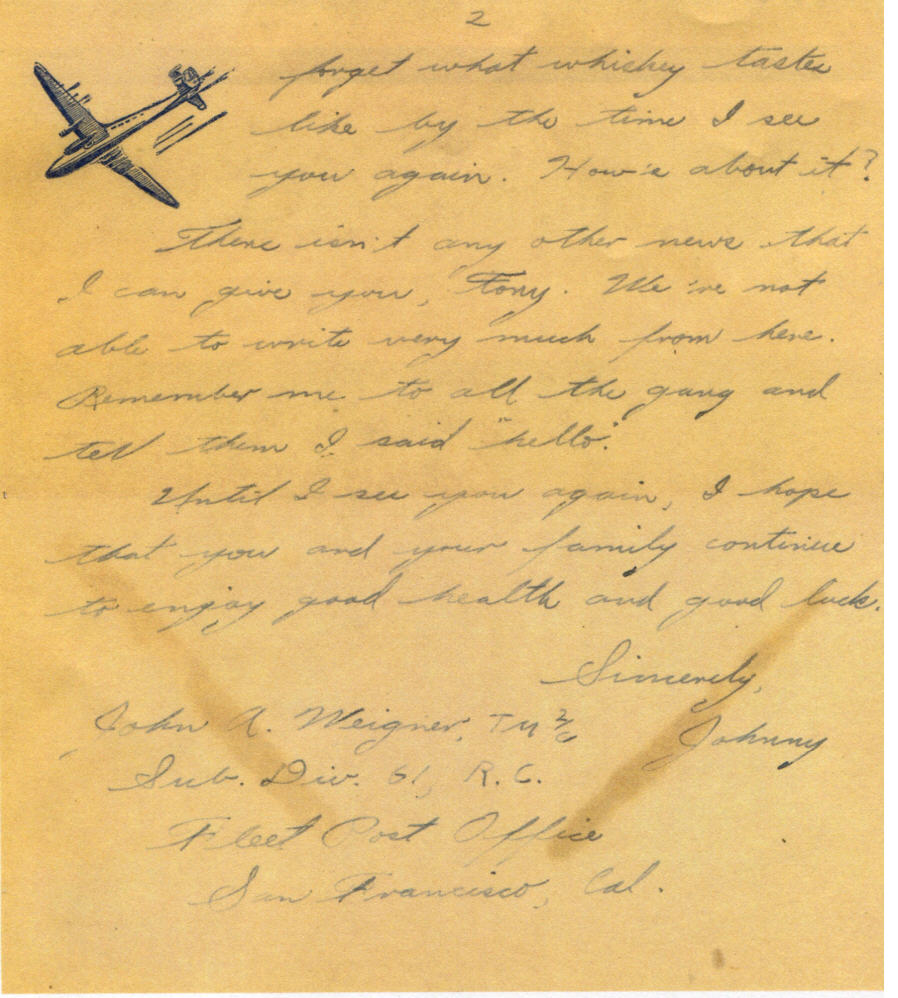 2
forget what whiskey tastes
like by the time I see
you again. How's about it?
There isn't any other news that
I can give you, Tony. We're not
able to write very much from here.
Remember me to all the gang and
tell them I said "hello".
Until I see you again, I hope
that you and your family continue
to enjoy good health and good luck.
Sincerely,
John A. Weigner, TM 2/c Johnny
Sub. Div. 61, R.C.
Fleet Post Office
San Francisco, Cal.